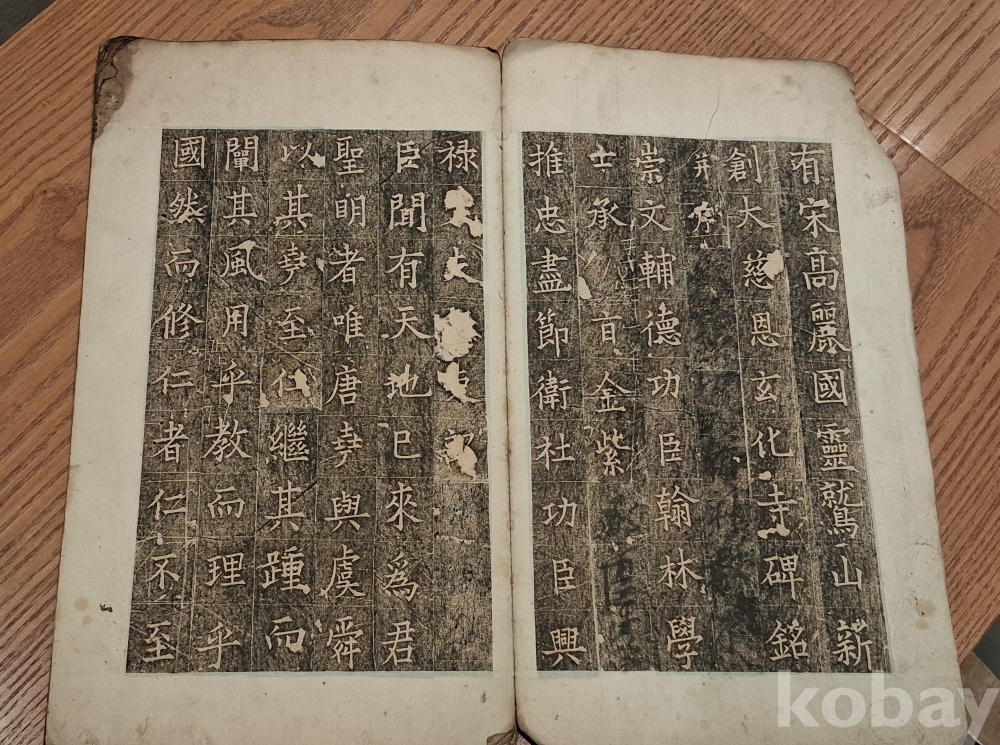 有宋高麗國靈鷲山新
創大慈恩玄化寺碑銘
并序
崇文輔德功臣翰林學
士承旨金紫
推忠盡節衛社功臣興
禄大夫
臣聞有天地已來爲君
聖明者唯唐堯與虞舜
以其堯至仁繼其踵而
闡其風用乎教而理乎
國然而修仁者仁不至
kobay